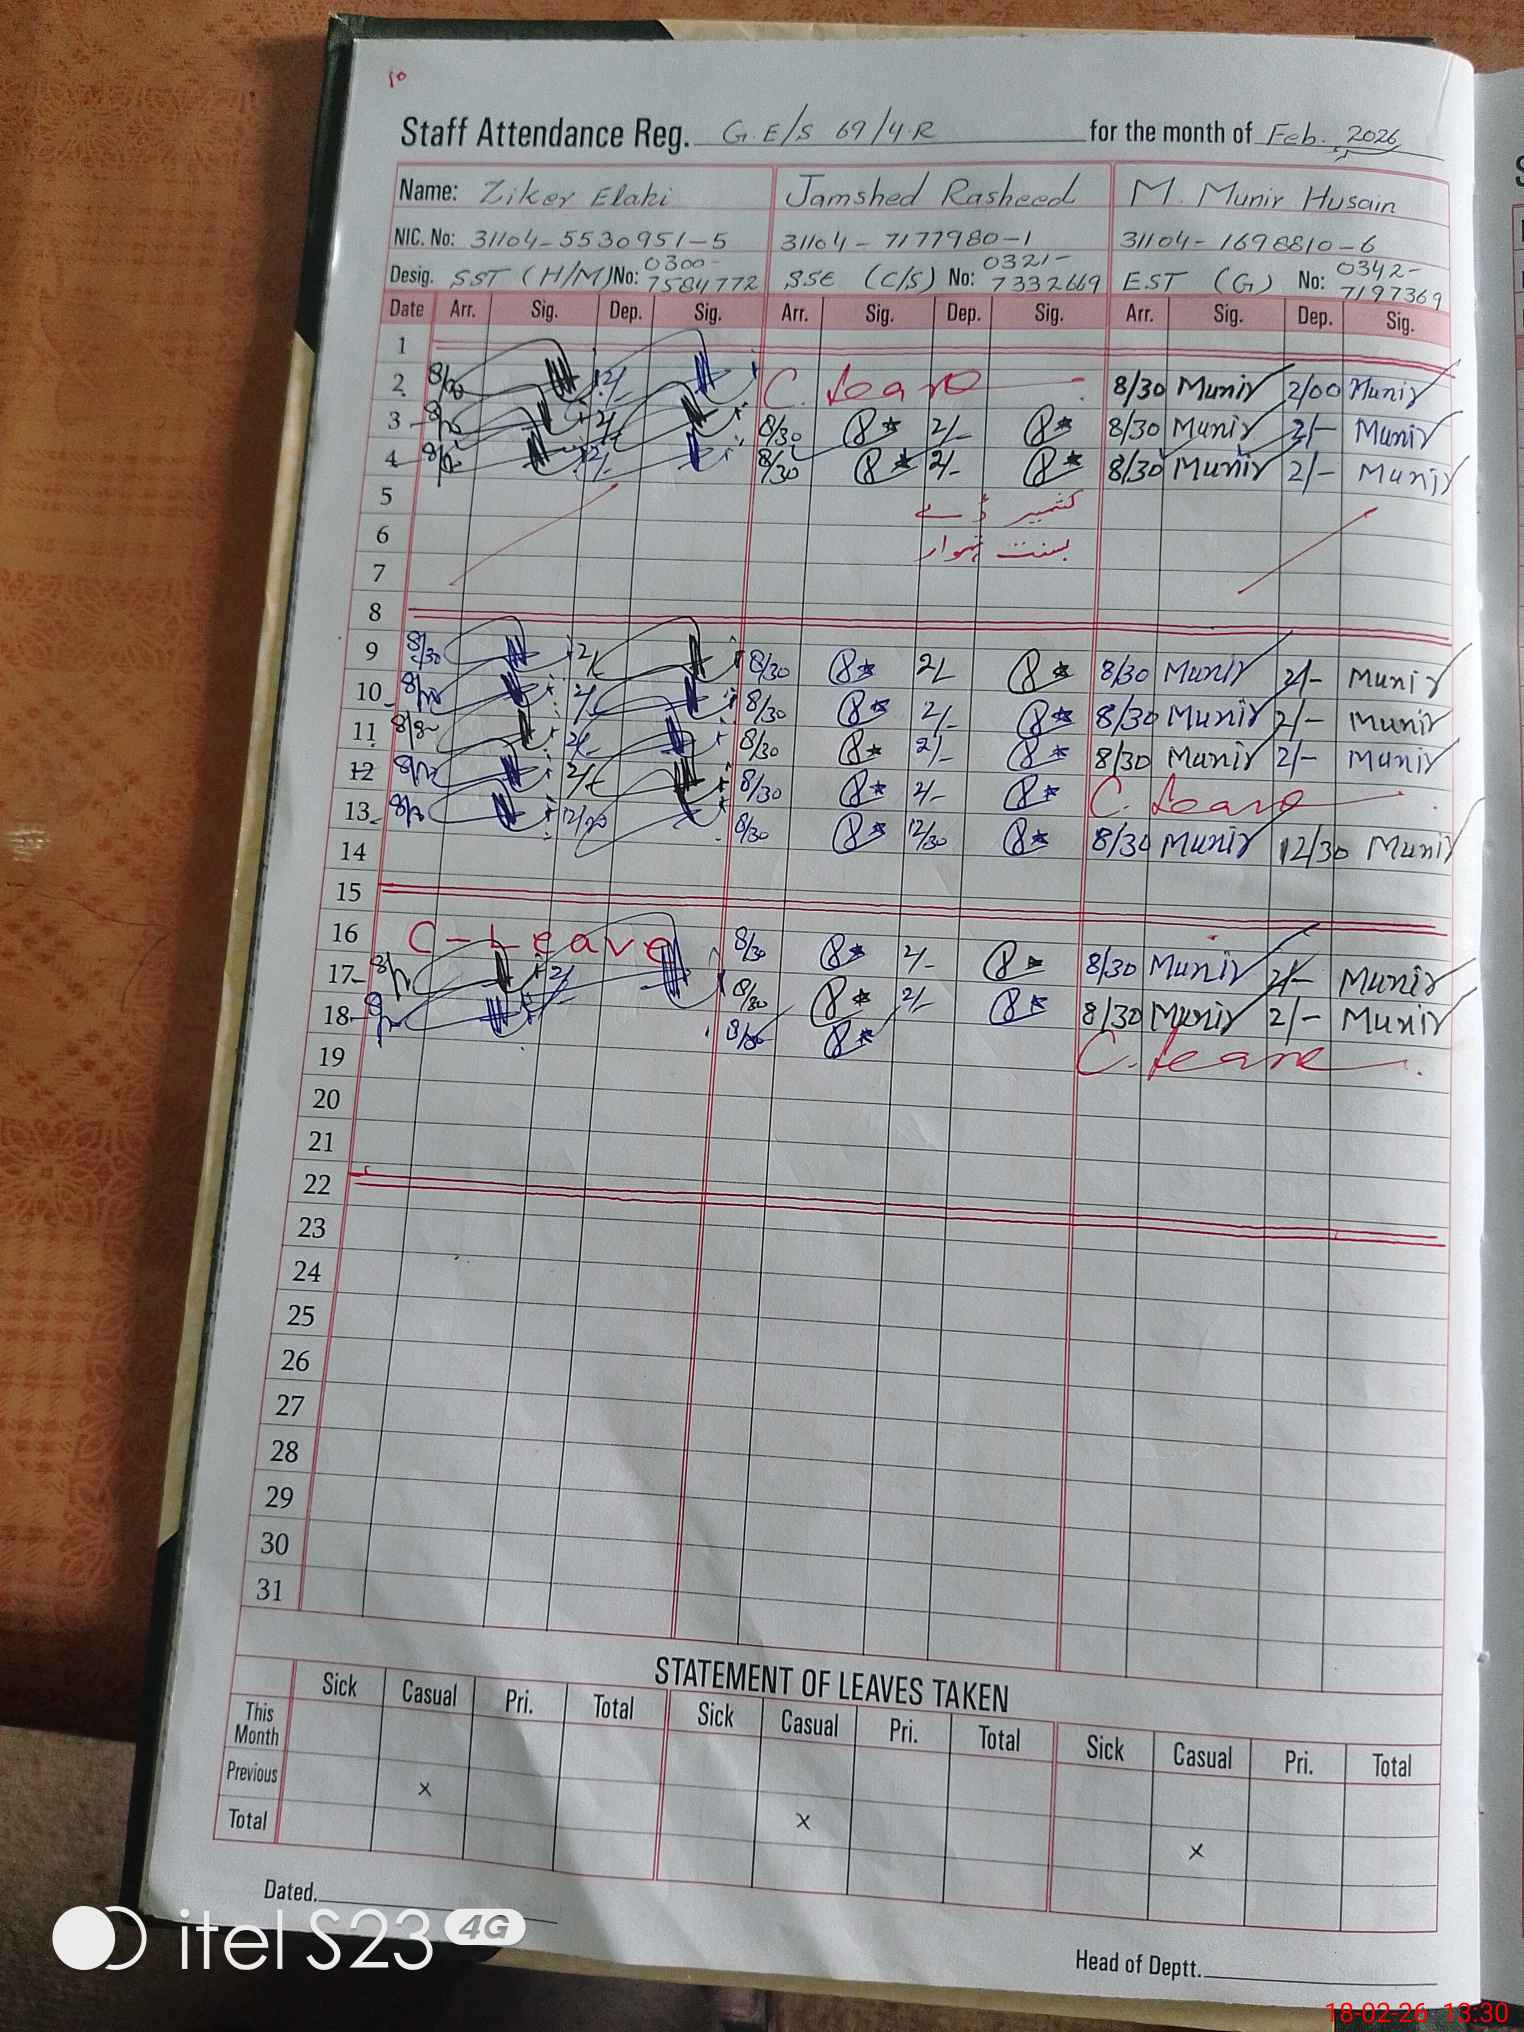 10
Staff Attendance Reg. G.E/S 69/4.R for the month of Feb. 2026
Name: Ziker Elahi Jamshed Rasheed M. Munir Husain
NIC. No: 31104-5530951-5 31104-7177980-1 31104-1698810-6
Desig. SST (H/M) No: 0300-7584772 SSE (C/S) No: 0321-7332669 EST (G) No: 0342-7197369
Date Arr. Sig. Dep. Sig. Arr. Sig. Dep. Sig. Arr. Sig. Dep. Sig.
1
2 2/- C. Leave 8/30 Munir 2/00 Munir
3 2/- 8/30 2/- 8/30 Munir 2/- Munir
4 2/- 8/30 2/- 8/30 Munir 2/- Munir
5 کشمیر ڈے
6 بسنت تہوار
7
8
9 8/30 2/- 8/30 2/- 8/30 Munir 2/- Munir
10 2/- 8/30 2/- 8/30 Munir 2/- Munir
11 2/- 8/30 2/- 8/30 Munir 2/- Munir
12 2/- 8/30 2/- C. Leave
13 12/30 8/30 12/30 8/30 Munir 12/30 Munir
14
15
16 C-Leave 8/30 2/- 8/30 Munir 2/- Munir
17 2/- 8/30 2/- 8/30 Munir 2/- Munir
18 8/30 C. Leave
19
20
21
22
23
24
25
26
27
28
29
30
31
STATEMENT OF LEAVES TAKEN
Sick Casual Pri. Total Sick Casual Pri. Total Sick Casual Pri. Total
This Month
Previous x x x
Total
Dated.
Head of Deptt.
itel S23 4G
18-02-26 13:30